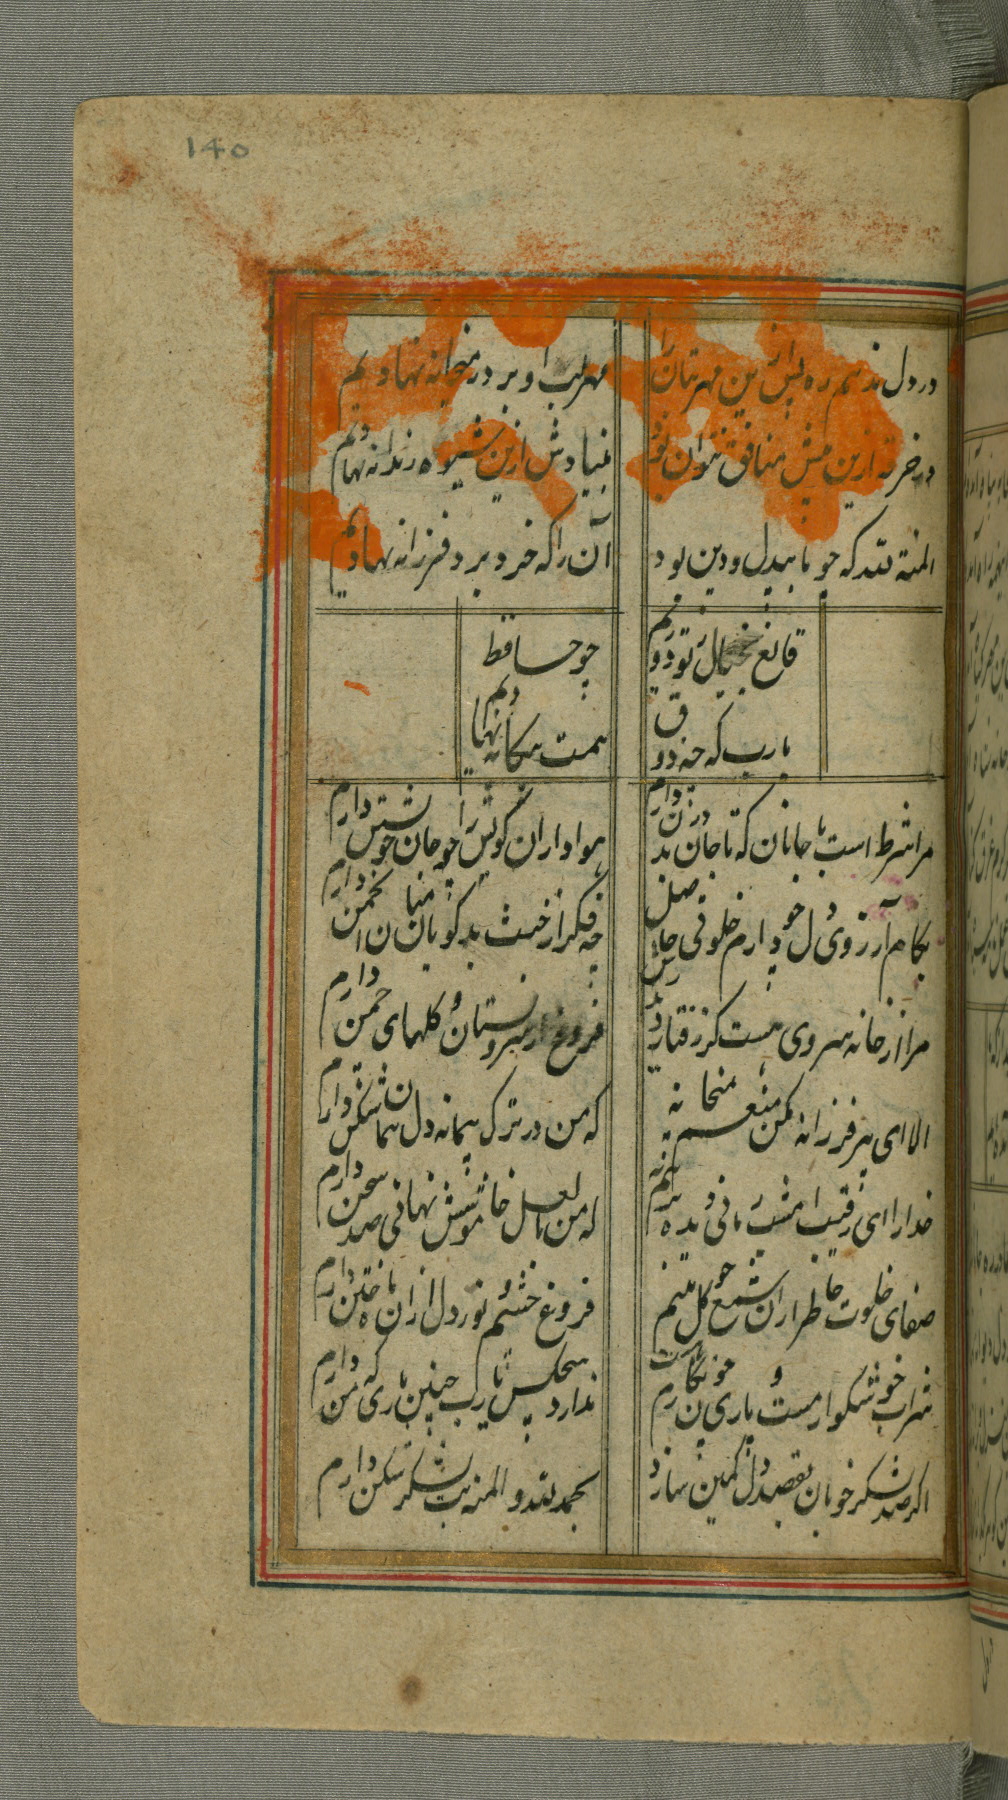 140
در دل ندهم ره پس ازین مهر بتان را
مهر لب او بر در میخانه نهادیم
در خرقه ازین بیش منافق نتوان بود
بنیادش ازین شیوه رندانه نهادیم
المنة لله که چو ما بیدل و دین بود
آن را که خرد برد فرزانه نهادیم
قانع بخیال ز تو بودیم
چو حافظ
یارب که چه دو ق
همت بیگانه نهادیم
مرا شرطست با جانان که تا جان در بدن دارم
هواداران کویش را چو جان خویشتن دارم
بکام آرزوی دل چو دارم خلوتی حاصل
چه فکر از خبث بدگویان میان انجمن دارم
مرا از خانه سروی هست کز رفتار
فروغ از سروستان و گلهای چمن دارم
الا ای پیر فرزانه مکن منعم ز میخانه
که من در ترک پیمانه دل پیمان شکن دارم
خدا را ای رقیب امشب زمانی دیده بر هم نه
که من با لعل خاموشش نهانی صد سخن دارم
صفای خلوت خاطر از آن شمع چو گل بینم
فروغ چشم و نور دل از آن ماه ختن دارم
شراب خوشگوارم هست و یاری خون نگارم
ندارد هیچکس یارب چنین یاری که من دارم
اگر صد لشکر خوبان بقصد دل کمین سازد
بحمد لله و المنه بت لشکر شکن دارم